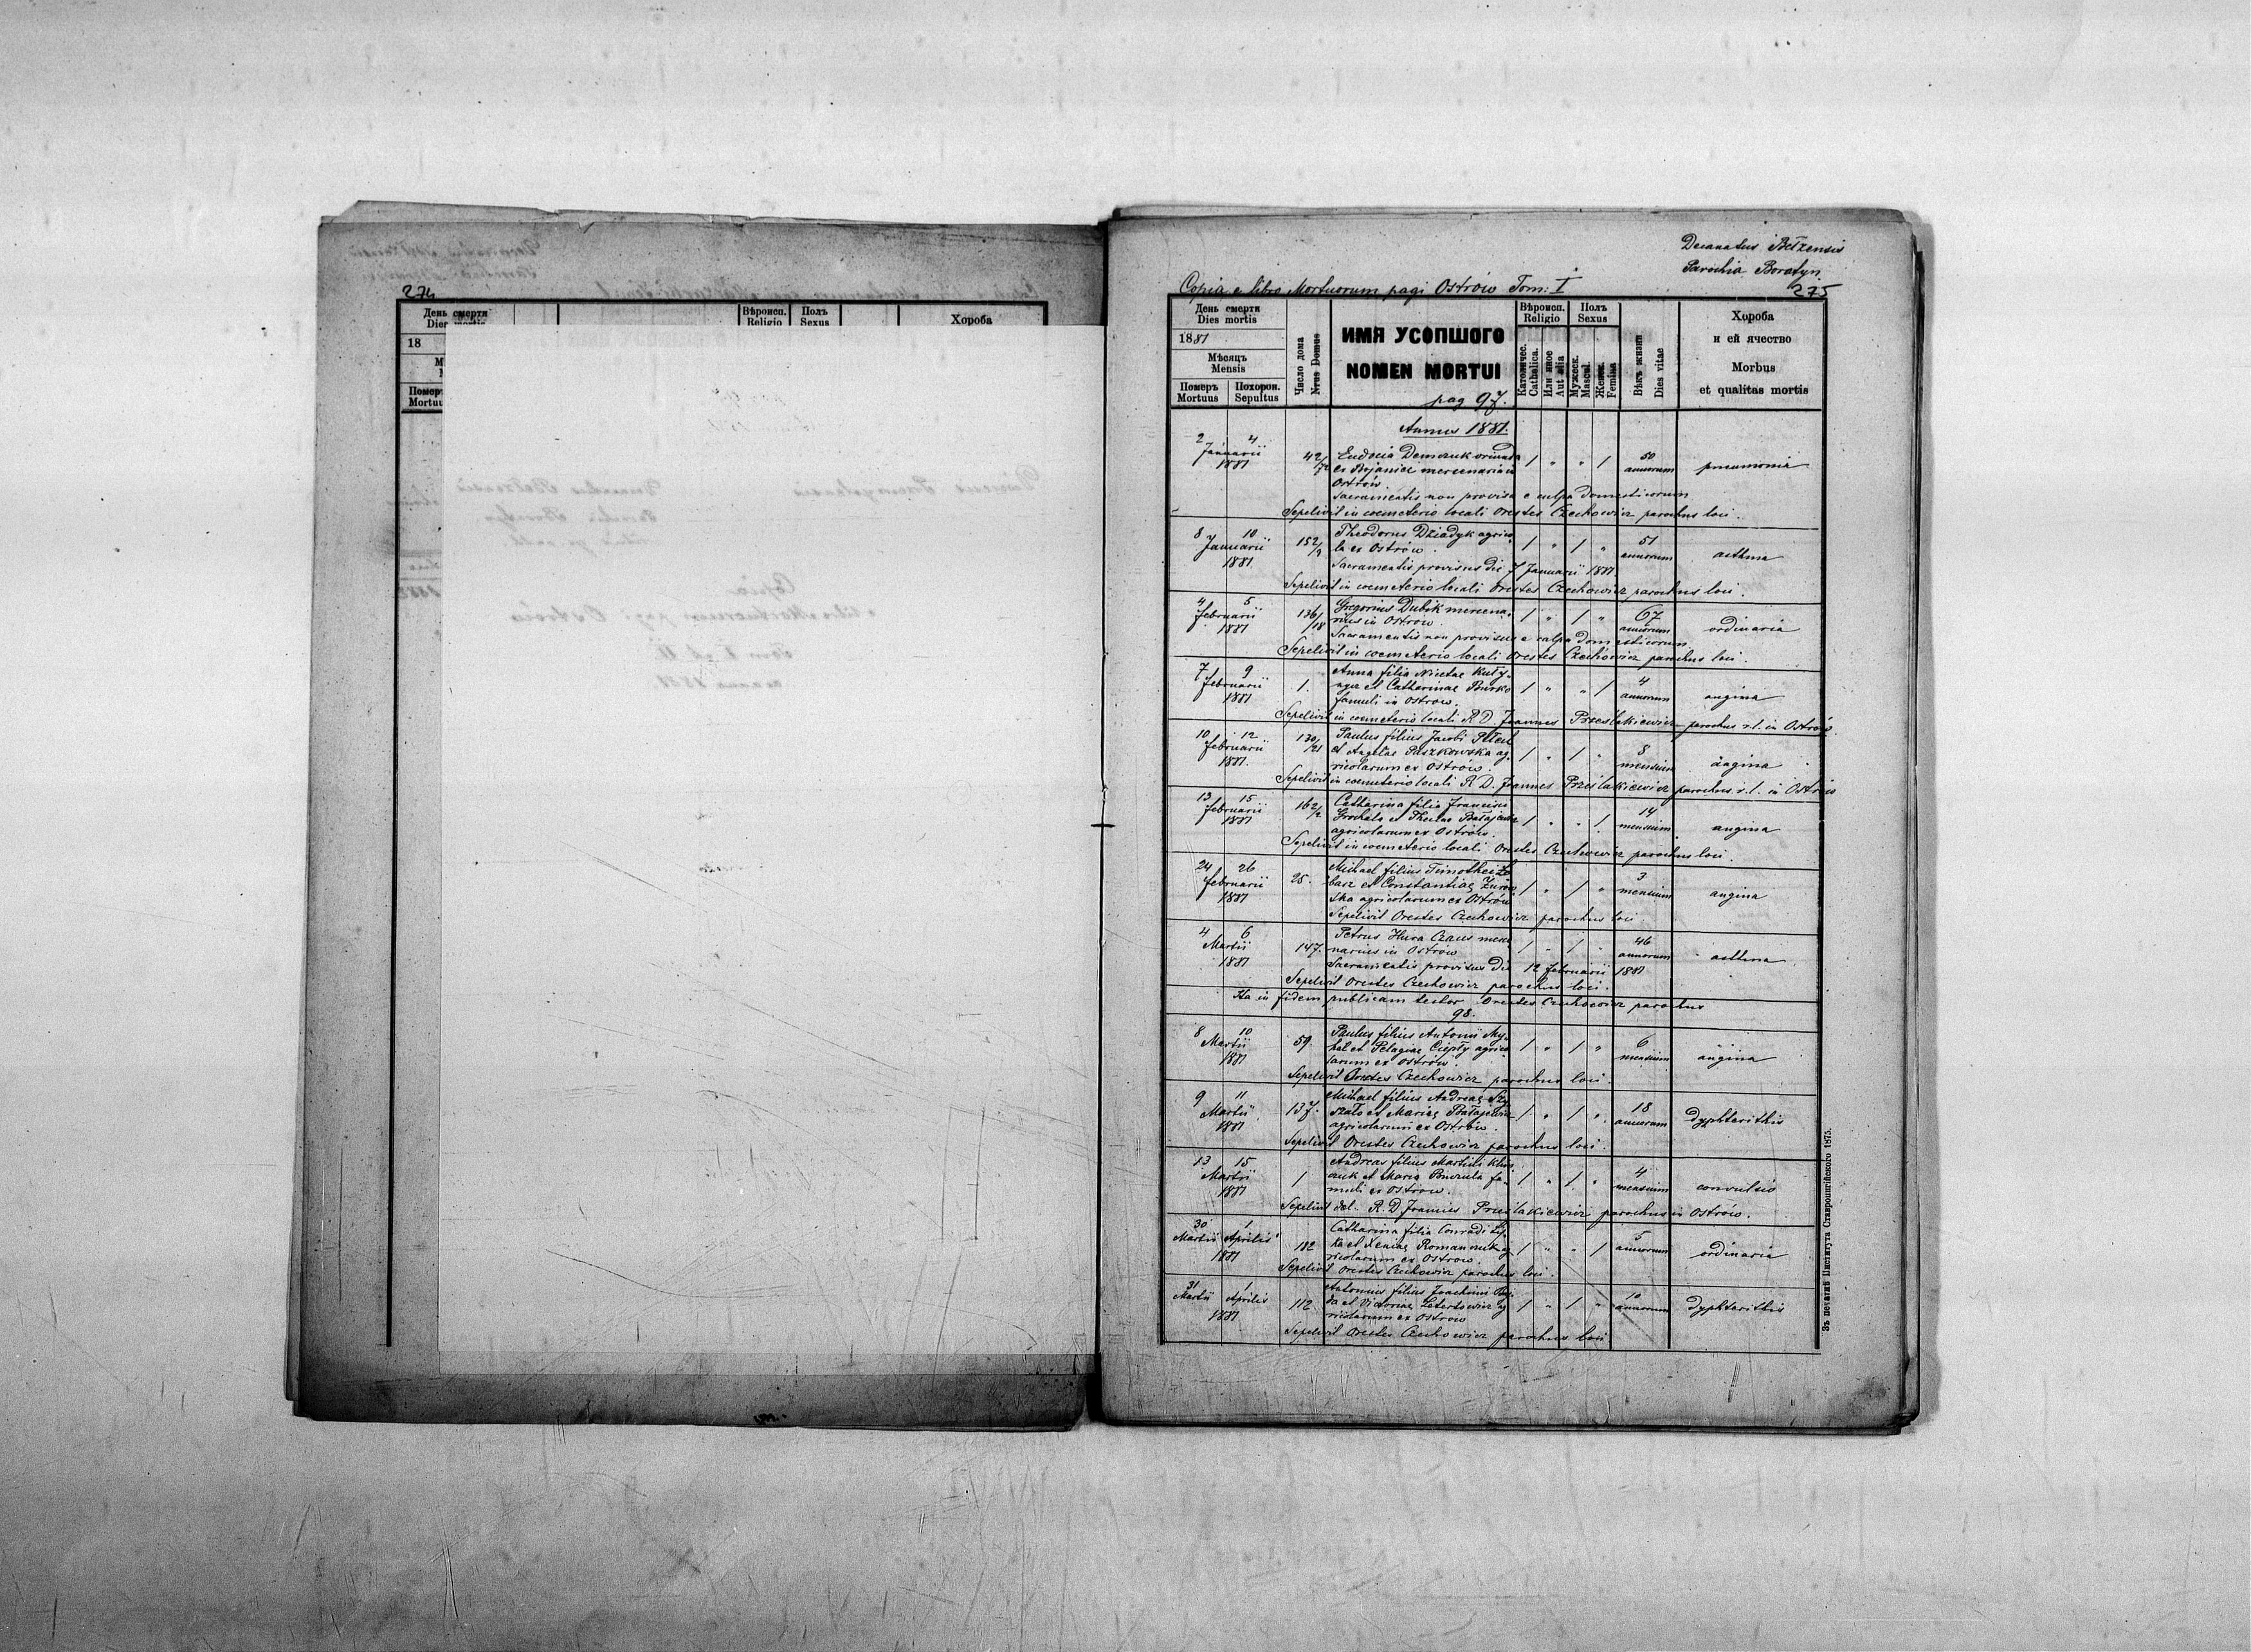 274
День смерти
Dies mortis
18
Вѣроисп.
Religio
Полъ
Sexus
Хороба
Померъ
Mortuus
Decanatus Bełzensis
Parochia Boratyn
275
Copia e libro Mortuorum pagi Ostrów Tom: I
День смерти
Dies mortis
1881
Мѣсяцъ
Mensis
Померъ
Mortuus
Похорон.
Sepultus
Число дома
Nrus Domus
ИМЯ УСОПШОГО
NOMEN MORTUI
pag 97.
Вѣроисп.
Religio
Католичес.
Catholica.
Или иное
Aut alia
Полъ
Sexus
Мужеск.
Mascul.
Женск.
Femina
Вѣкъ жизни
Dies vitae
Хороба
и ей ячество
Morbus
et qualitas mortis
Annus 1881.
2 4 Januarii 1881 42/72 Eudocia Demczuk oriunda 1 " " 1 50 annorum pneumonia
ex Bojanice mercenaria in
Ostrów.
Sacramentis non provisa e culpa domesticorum
Sepelivit in coemeterio locali Orestes Czechowicz parochus loci.
8 10 Januarii 1881 152/3 Theodorus Dziadyk agrico- 1 " 1 " 51 annorum asthma
la ex Ostrów.
Sacramentis provisus die 7 Januarii 1881
Sepelivit in coemeterio locali Orestes Czechowicz parochus loci.
4 5 Februarii 1881 136/18 Gregorius Dubik mercena- 1 " 1 " 67 annorum ordinaria
rius in Ostrów.
Sacramentis non provisus e culpa domesticorum
Sepelivit in coemeterio locali Orestes Czechowicz parochus loci.
7 9 Februarii 1881 1. Anna filia Nicetae 1 " " 1 4 annorum angina
et Catharinae Burko
famuli in Ostrów.
Sepelivit in coemeterio locali R. D. Joannes Prześlakiewicz parochus r. l. in Ostrów.
10 12 Februarii 1881. 130/21 Paulus filius Jacobi 1 " 1 " 8 mensium angina
et Angelae Paszkowska ag-
ricolarum ex Ostrów.
Sepelivit in coemeterio locali R. D. Joannes Prześlakiewicz parochus r. l. in Ostrów
13 15 Februarii 1881 162/2 Catharina filia Francisci 1 " " 1 14 mensium angina
Grochala et Theclae
agricolarum ex Ostrów.
Sepelivit in coemeterio locali Orestes Czechowicz parochus loci.
24 26 Februarii 1881 25. Michael filius Timothei 1 " 1 " 3 mensium angina
et Constantiae Żurow-
ska agricolarum ex Ostrów
Sepelivit Orestes Czechowicz parochus loci
4 6 Martii 1881 147. Petrus Hura 1 " 1 " 46 annorum asthma
narius in Ostrów
Sacramentis provisus die 12 Februarii 1881
Sepelivit Orestes Czechowicz parochus loci.
Ita in fidem publicam testor Orestes Czechowicz parochus
98.
8 10 Martii 1881 59. Paulus filius Antonii 1 " 1 " 6 mensium angina
et Pelagiae Ciepły agrico-
larum ex Ostrów.
Sepelivit Orestes Czechowicz parochus loci.
9 11 Martii 1881 137. Michael filius Andreae 1 " 1 " 18 annorum dyphterithis
et Mariae
agricolarum ex Ostrów.
Sepelivit Orestes Czechowicz parochus loci.
13 15 Martii 1881 1 Andreas filius 1 " 1 " 4 mensium convulsio
et Maria fa-
muli ex Ostrów.
Sepelivit R. D. Joannes Prześlakiewicz parochus in Ostrów.
30 Martii 1 Aprilis 1881 182 Catharina filia Conradi 1 " " 1 5 annorum ordinaria
et Xeniae Romanczuk ag-
ricolarum ex Ostrów.
Sepelivit Orestes Czechowicz parochus loci.
31 Martii 1 Aprilis 1881 112 Antonius filius Joachimi 1 " 1 " 10 annorum dyphterithis
et Victoriae ag-
ricolarum ex Ostrów
Sepelivit Orestes Czechowicz parochus loci
Зъ печатнѣ Института Ставропигійского 1875.